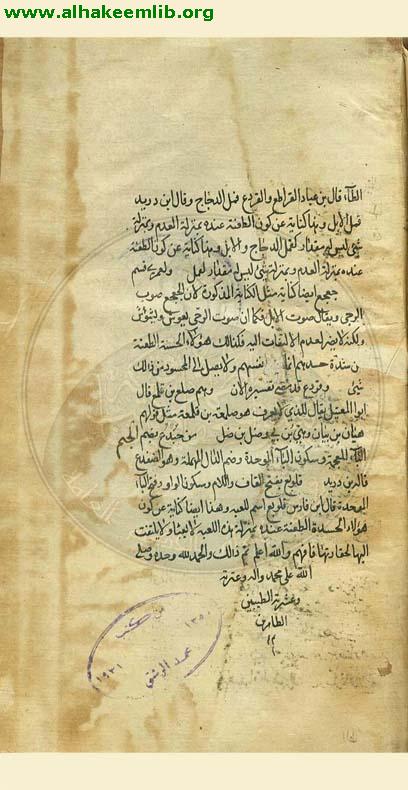 www.alhakeemlib.org
الطاء قال بن عباد القراطع والقردع قمل الدجاج وقال ابن دريد
قمل الابل وبها كناية عن كون الطغنة عنده بمنزلة العدم وبمنزلة
شئ ليس له مقدار كقمل الدجاج والابل وبها كناية عن كون الطغنة
عنده بمنزلة العدم وبمنزلة شئ ليس له مقدار
جعجع ايضا كناية مثل الكناية المذكورة لان الجعجع صوب
الرحى ويقال صوت الابل فكما ان صوت الرحى
ولكنه لا يضر لعدم الالتفات اليه فكذلك هؤلاء الحسدة الطغنة
من شدة حسدهم انفسهم ولا يصل الى المحسود من ذلك
شئ وقردع قد مضى تفسيره الان وهم صلع بن قلع قال
ابو العميثل يقال للذي لا يعرف هو صلعة بن قلعة مثل قولهم
هيان بن بيان وهي بن بي وضل بن ضل من خبدع بضم الخاء
المعجمة وسكون الباء الموحدة وضم الدال المهملة وهو الضفدع
قاله بن دريد قلوبع بفتح القاف واللام وسكون الواو وفتح الباء
الموحدة قال ابن فارس قلوبع اسم للعبه وهذا ايضا كناية عن كون
هؤلاء الحسدة الطغنة عنده بمنزلة هذه اللعبة لا يعبأ ولا يلتفت
اليها لحقارتها فافهم والله اعلم تم ذلك والحمد لله وحده وصلى
الله على محمد واله وعترته
وعشيرته الطيبين
الطاهرين
١٢
من كتب
١٣٥٠
محمد الرشتي
١٩٣١